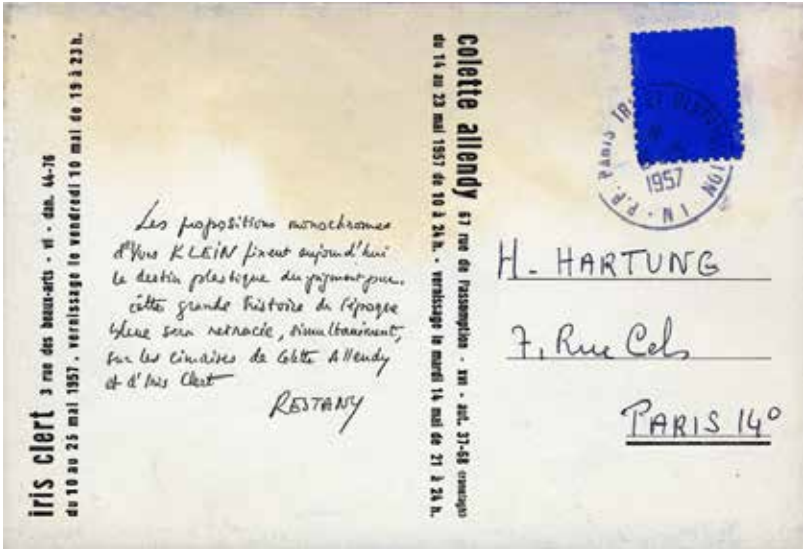 iris clert 3 rue des beaux-arts - vi - dan. 44-76
du 10 au 25 mai 1957. vernissage le vendredi 10 mai de 19 à 23 h.
Les propositions monochromes
d'Yves KLEIN fixent aujourd'hui
le destin plastique du pigment pur.
cette grande histoire de l'époque
bleue sera retracée, simultanément,
sur les cimaises de Colette Allendy
et d'Iris Clert
RESTANY
colette allendy 67 rue de l'assomption - xvi - aut. 37-68 (ranelagh)
du 14 au 23 mai 1957 de 10 à 24 h. - vernissage le mardi 14 mai de 21 à 24 h.
P.P. PARIS
1957
H. HARTUNG
7, Rue Cels
PARIS 14°